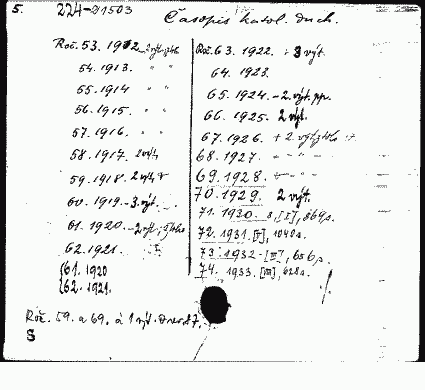 5. 224-01503
Časopis katol. duch.
Roč. 53. 1912
54. 1913 " "
55. 1914 " "
56. 1915. " "
57. 1916. " "
58. 1917. 2 výt.
59. 1918. 2 výt.
60. 1919. - 3. výt.
61. 1920. - 2 výt.
62. 1921.
{61. 1920
{62. 1921.
Roč. 63. 1922. + 3 výt.
64. 1923.
65. 1924. - 2. výt.
66. 1925. 2 výt.
67. 1926. + 2. výt.
68. 1927.
69. 1928.
70. 1929. 2 výt.
71. 1930. 8, [I], 869 s.
72. 1931. [I], 1040 s.
73. 1932 - [III], 656 s.
74. 1933. [III], 628 s.
Roč. 59. a 69. à 1 výt.
S